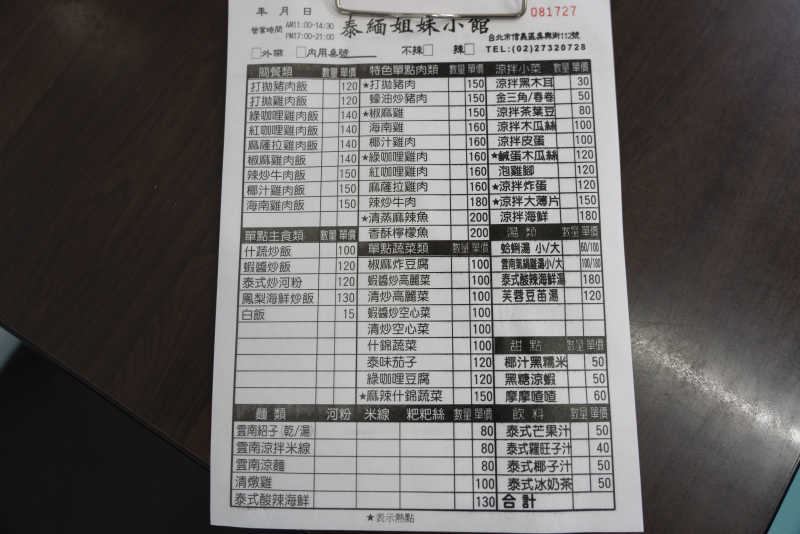 年 月 日
081727
營業時間 AM11:00-14:30
PM17:00-21:00
泰緬姐妹小館
台北市信義區吳興街112號
TEL:(02)27320728
外帶 內用 桌號 不辣 辣
簡餐類 數量 單價
打拋豬肉飯 120
打拋雞肉飯 120
綠咖哩雞肉飯 140
紅咖哩雞肉飯 140
麻薩拉雞肉飯 140
椒麻雞肉飯 140
辣炒牛肉飯 150
椰汁雞肉飯 150
海南雞肉飯 150
單點主食類 數量 單價
什蔬炒飯 100
蝦醬炒飯 120
泰式炒河粉 120
鳳梨海鮮炒飯 130
白飯 15
特色單點肉類 數量 單價
★打拋豬肉 150
蠔油炒豬肉 150
★椒麻雞 150
海南雞 160
椰汁雞肉 160
★綠咖哩雞肉 160
紅咖哩雞肉 160
麻薩拉雞肉 160
辣炒牛肉 180
★清蒸麻辣魚 200
香酥檸檬魚 200
單點蔬菜類 數量 單價
椒麻炸豆腐 100
蝦醬炒高麗菜 100
清炒高麗菜 100
蝦醬炒空心菜 100
清炒空心菜 100
什錦蔬菜 100
泰味茄子 120
綠咖哩豆腐 120
★麻辣什錦蔬菜 150
涼拌小菜 數量 單價
涼拌黑木耳 30
金三角/春卷 50
涼拌茶葉豆 80
涼拌木瓜絲 100
涼拌皮蛋 100
★鹹蛋木瓜絲 120
泡雞腳 120
★涼拌炸蛋 120
★涼拌大薄片 150
涼拌海鮮 180
湯類 數量 單價
蛤蜊湯 小/大 60/100
雲南氣鍋雞湯小/大 100/180
泰式酸辣海鮮湯 180
芙蓉豆苗湯 120
甜點 數量 單價
椰汁黑糯米 50
黑糖涼蝦 50
摩摩喳喳 60
麵類 河粉 米線 粑粑絲 數量 單價
雲南紹子 乾/湯 80
雲南涼拌米線 80
雲南涼麵 80
清燉雞 100
泰式酸辣海鮮 130
飲料 數量 單價
泰式芒果汁 50
泰式羅旺子汁 40
泰式椰子汁 50
泰式冰奶茶 50
合計
★表示熱點